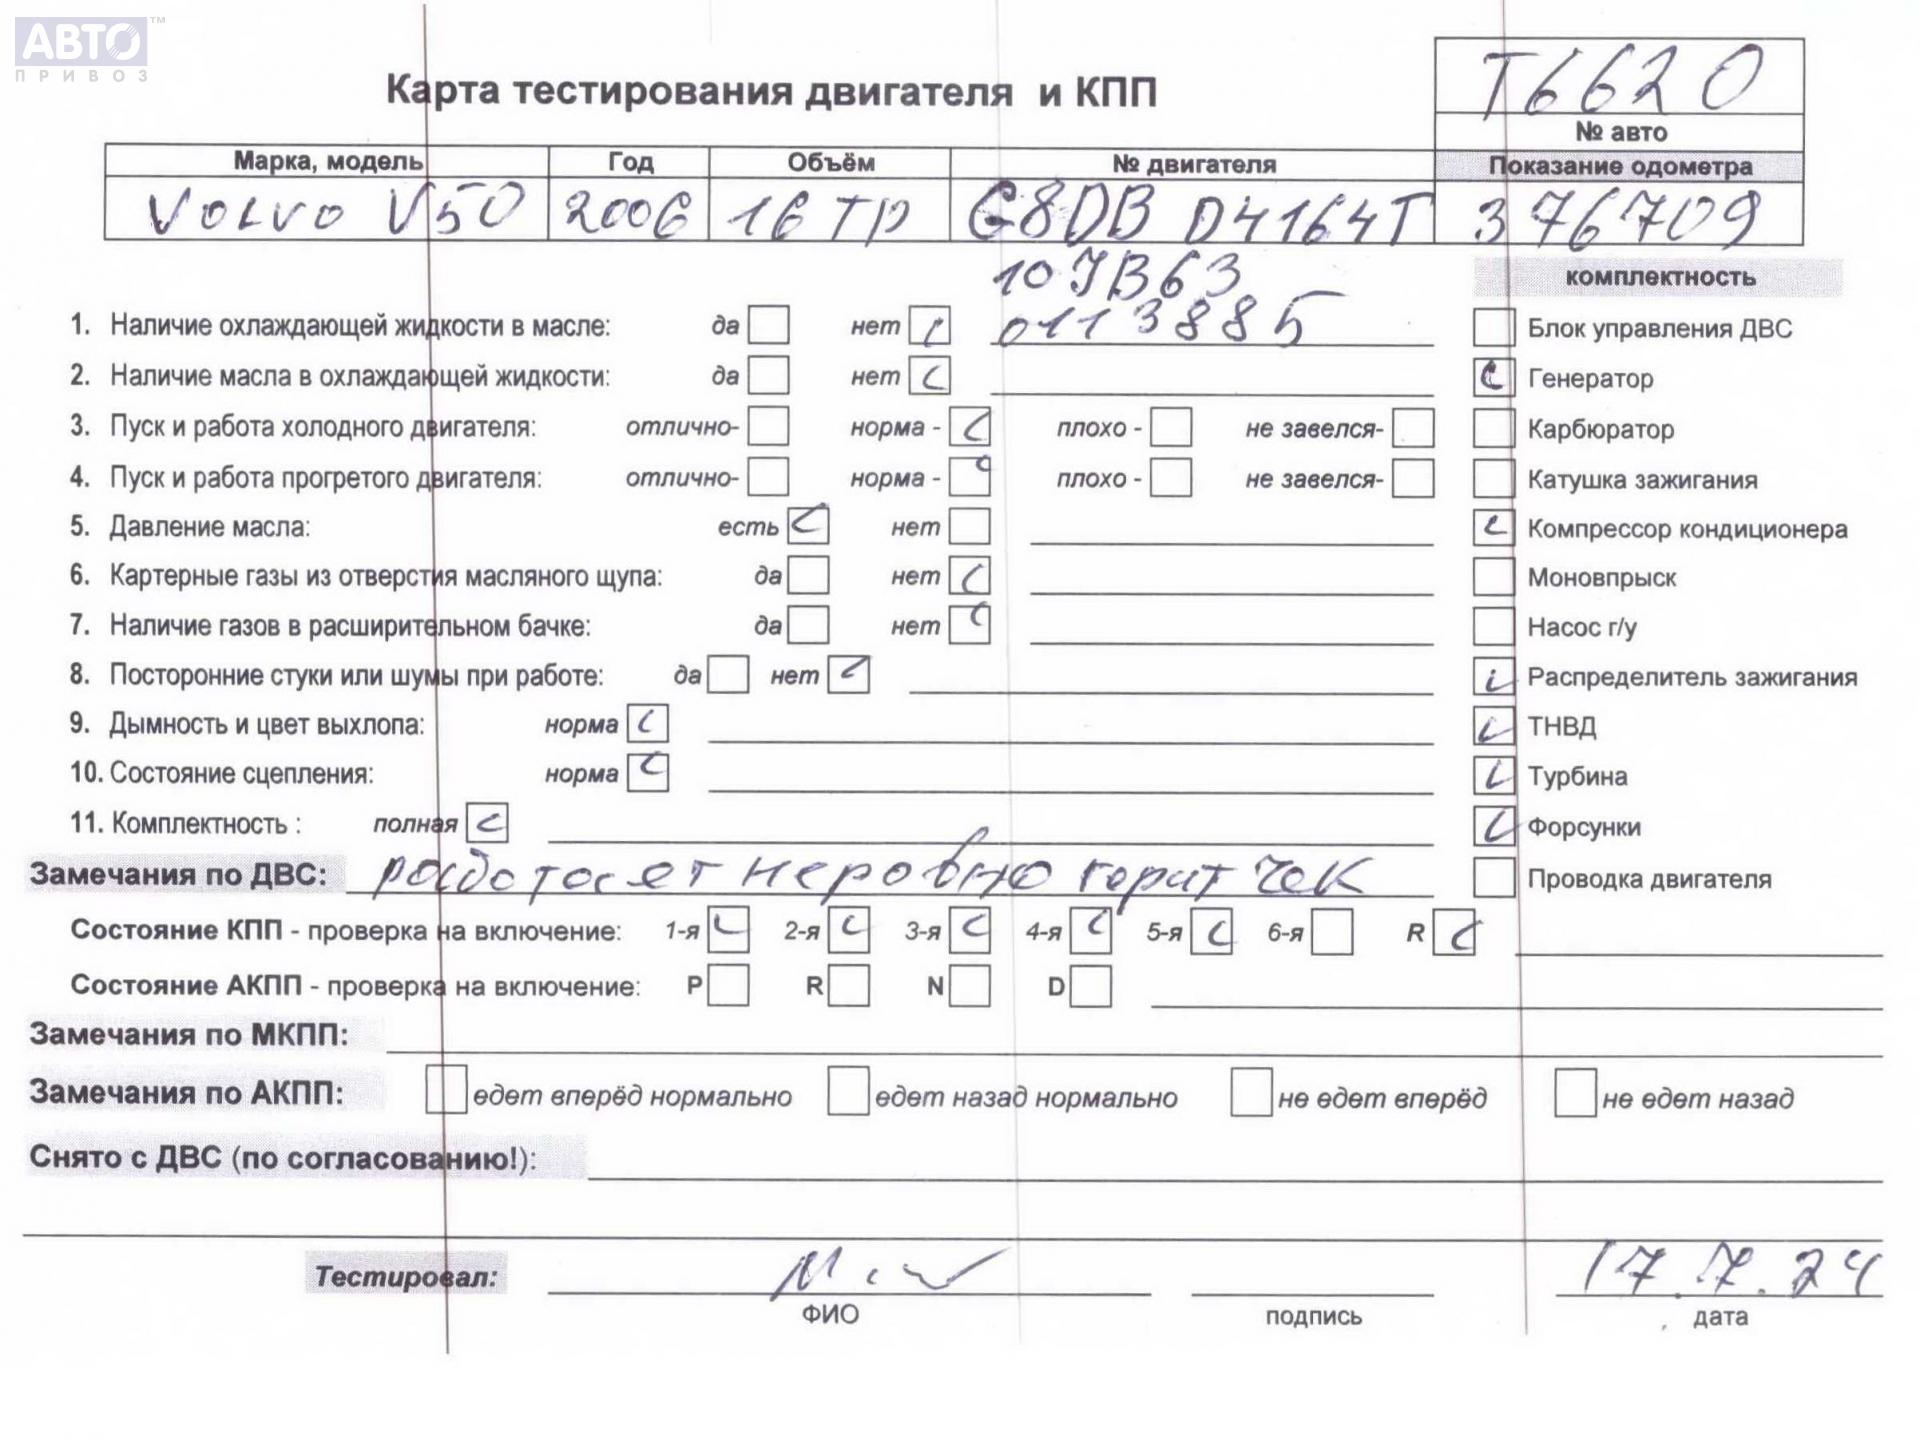 АВТО™
ПРИВОЗ
Карта тестирования двигателя и КПП
Т6620
№ авто
Марка, модель Год Объём № двигателя Показание одометра
VOLVO V50 2006 16 TD G8DB D4164T 376709
10JB63
0113885
комплектность
1. Наличие охлаждающей жидкости в масле: да нет
Блок управления ДВС
2. Наличие масла в охлаждающей жидкости: да нет
Генератор
3. Пуск и работа холодного двигателя: отлично- норма - плохо - не завелся-
Карбюратор
4. Пуск и работа прогретого двигателя: отлично- норма - плохо - не завелся-
Катушка зажигания
5. Давление масла: есть нет
Компрессор кондиционера
6. Картерные газы из отверстия масляного щупа: да нет
Моновпрыск
7. Наличие газов в расширительном бачке: да нет
Насос г/у
8. Посторонние стуки или шумы при работе: да нет
Распределитель зажигания
9. Дымность и цвет выхлопа: норма
ТНВД
10. Состояние сцепления: норма
Турбина
11. Комплектность : полная
Форсунки
Замечания по ДВС: работает неровно горит чек
Проводка двигателя
Состояние КПП - проверка на включение: 1-я 2-я 3-я 4-я 5-я 6-я R
Состояние АКПП - проверка на включение: P R N D
Замечания по МКПП:
Замечания по АКПП: едет вперёд нормально едет назад нормально не едет вперёд не едет назад
Снято с ДВС (по согласованию!):
Тестировал: 17.7.24
ФИО подпись дата